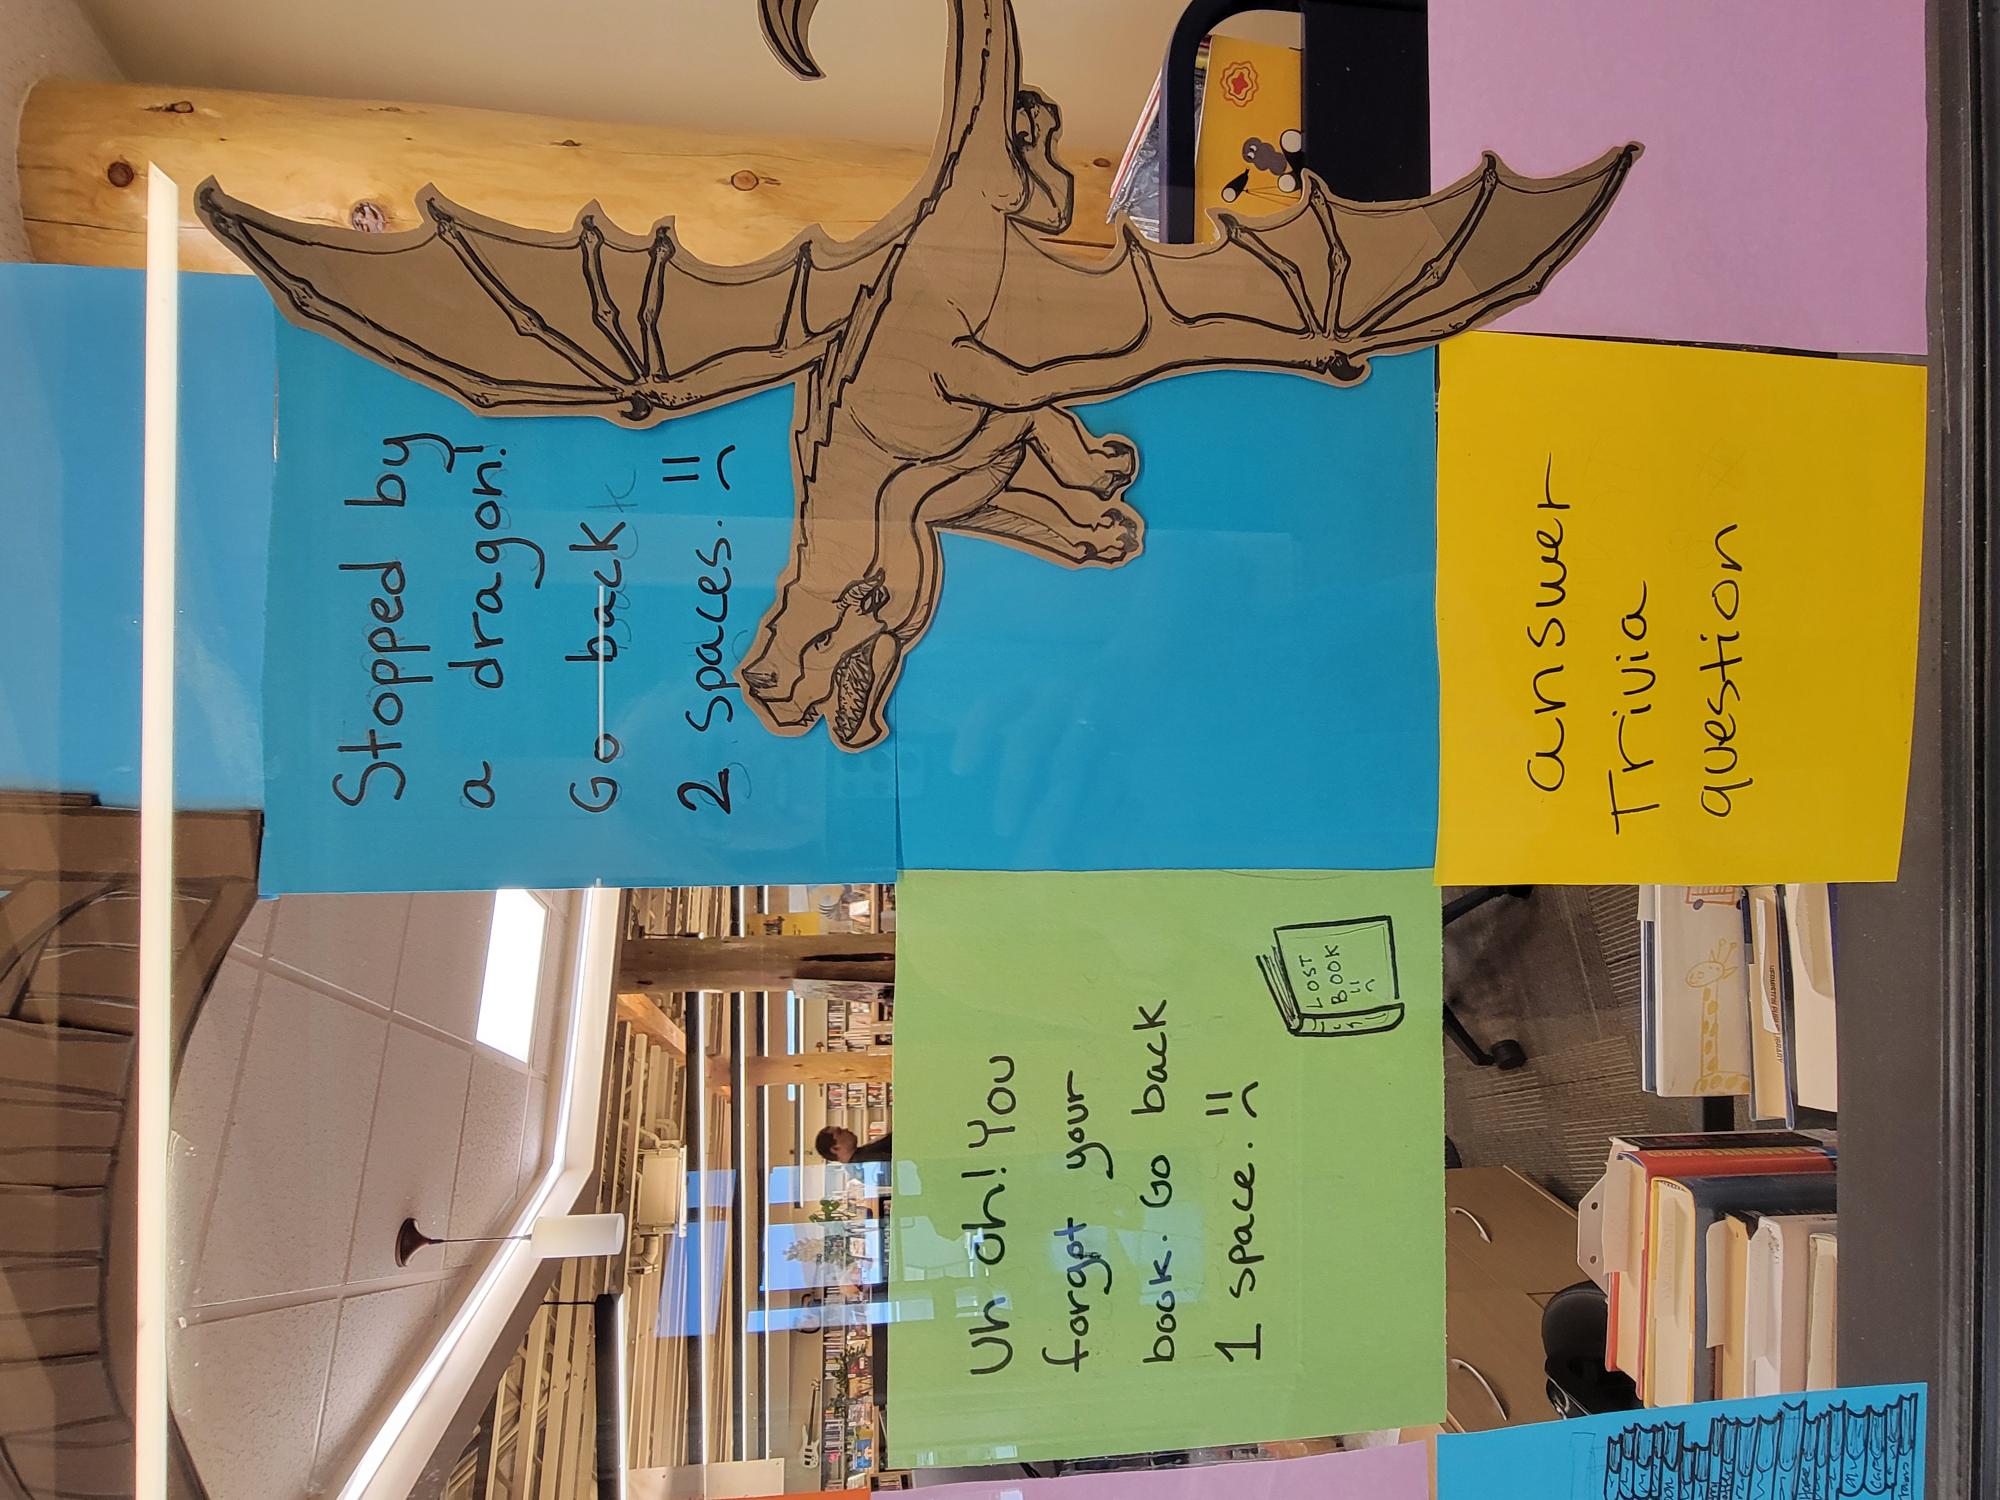 Stopped by
a dragon!
Go back
2 spaces.
Uh oh! You
forgot your
book. Go back
1 space.
LOST
BOOK
answer
Trivia
question